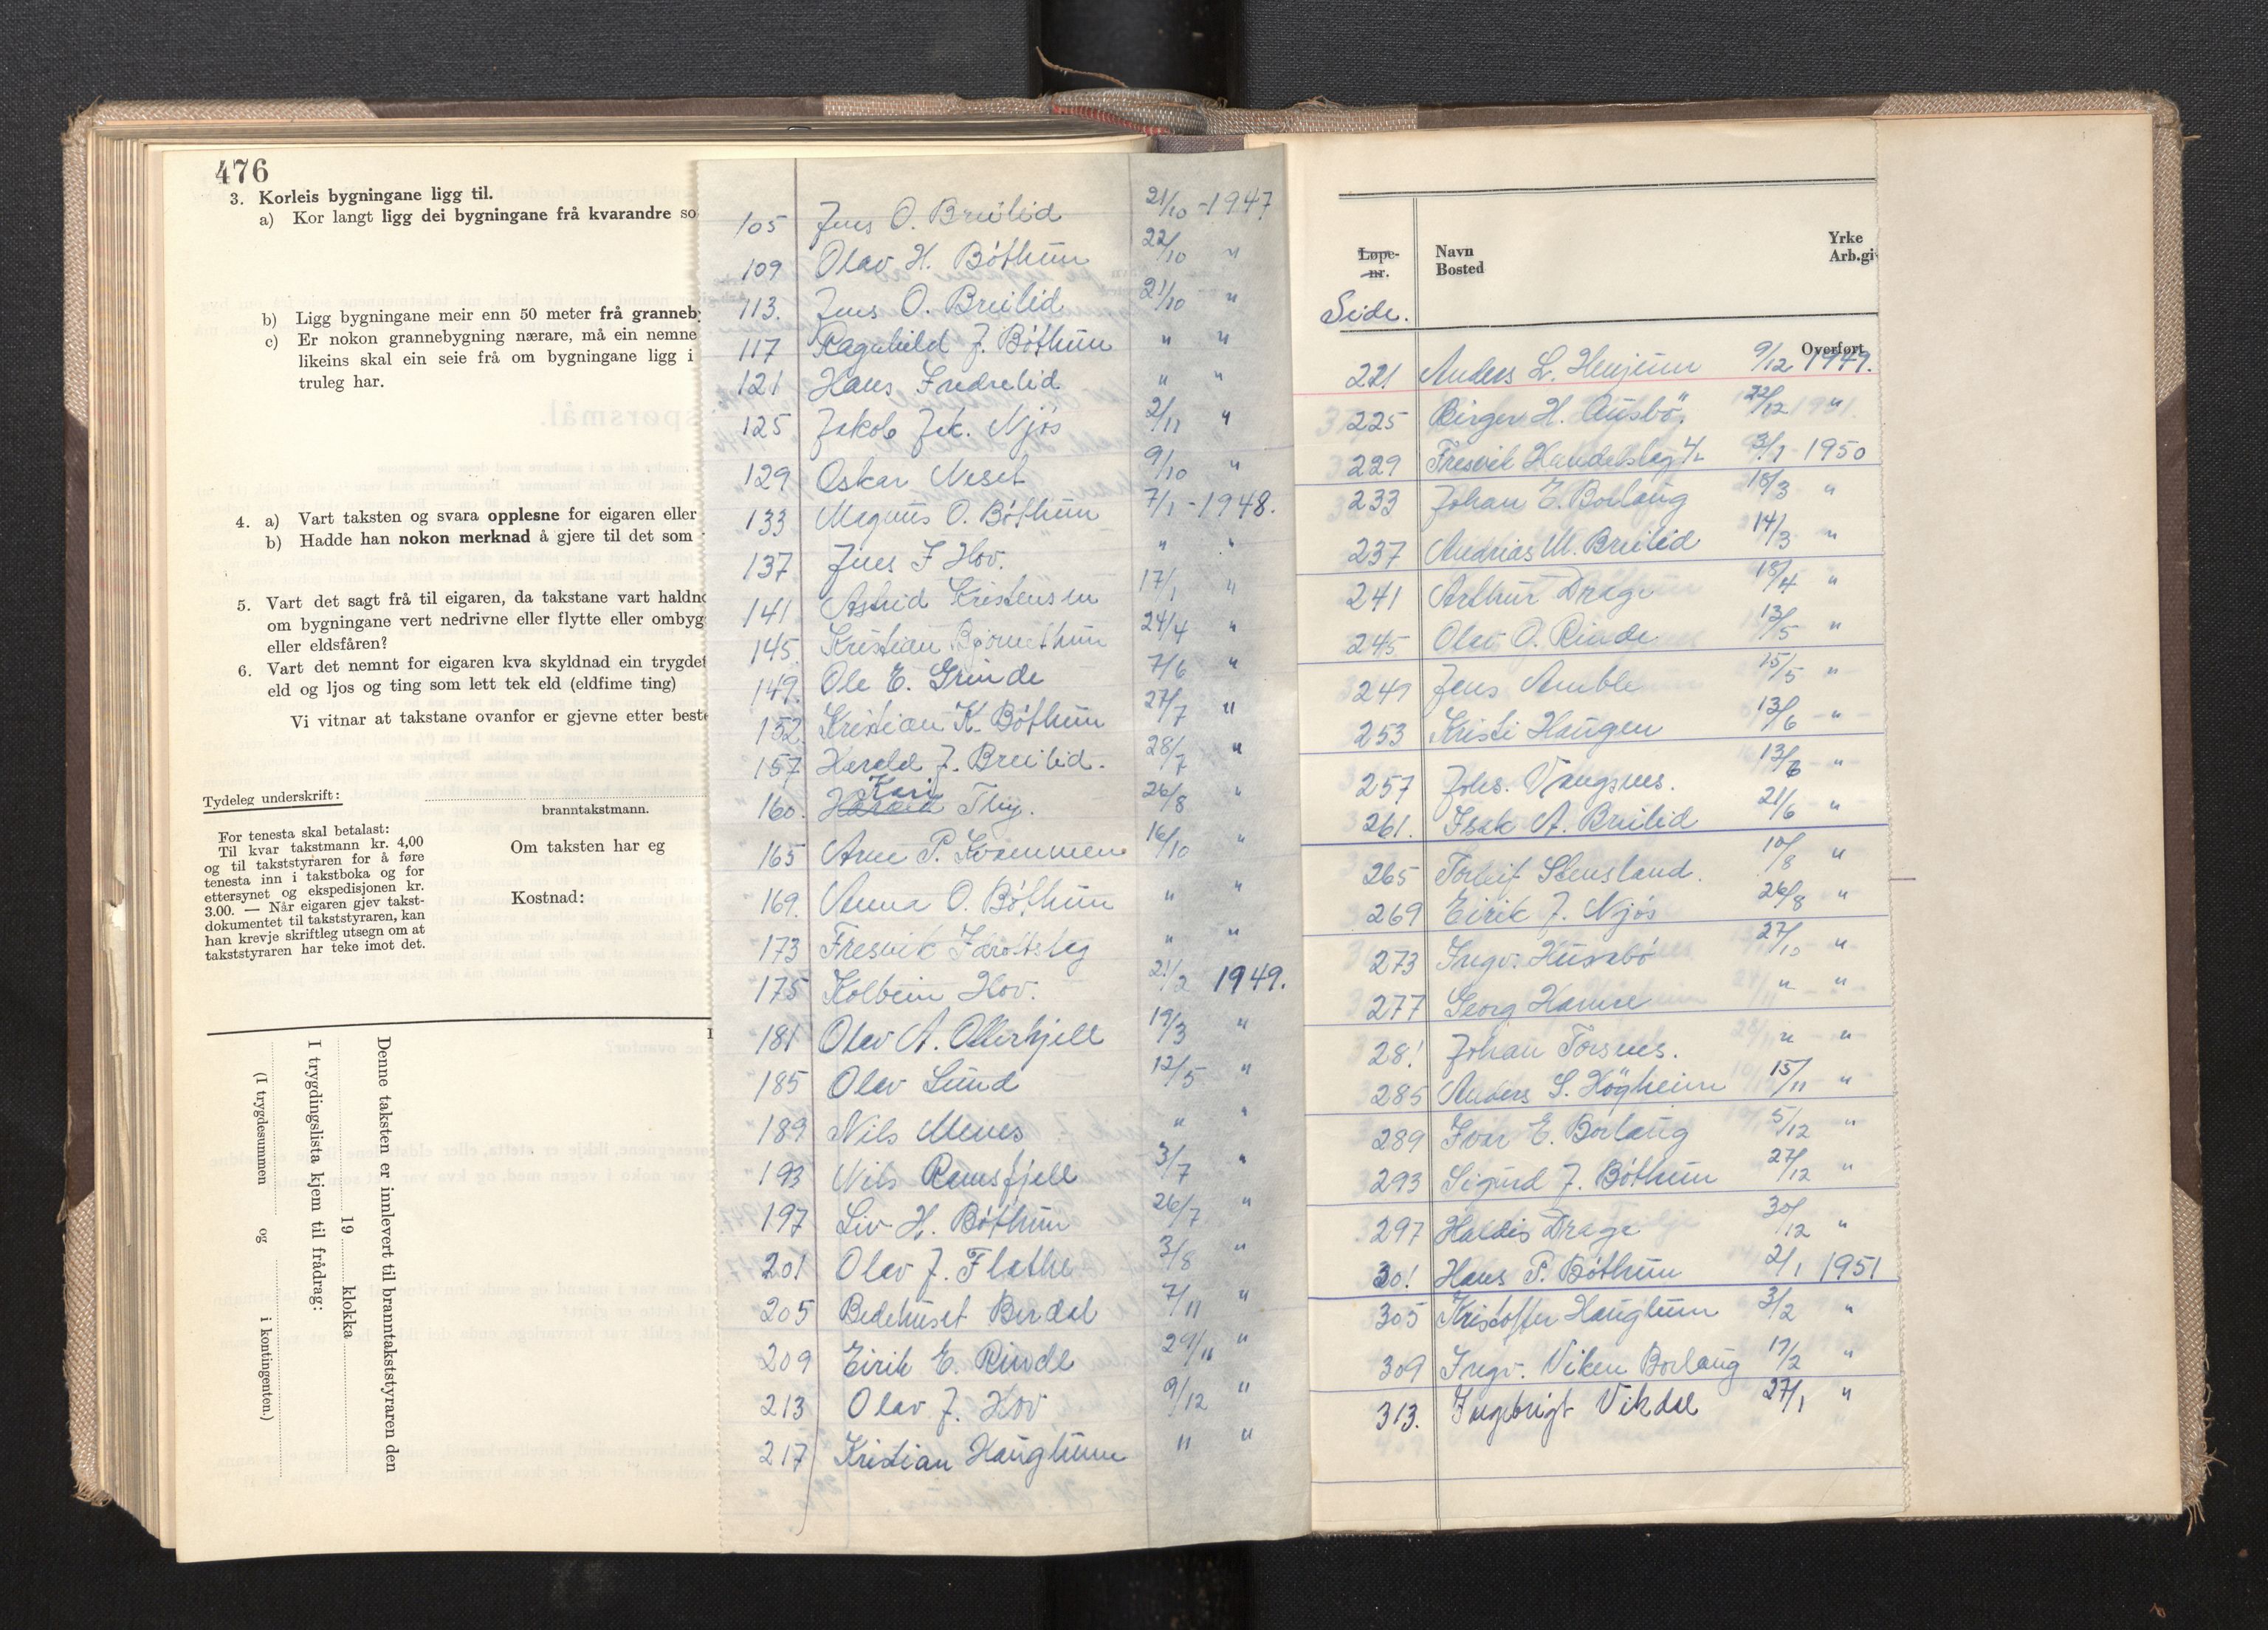 476
3. Korleis bygningane ligg til.
a) Kor langt ligg dei bygningane frå kvarandre so
b) Ligg bygningane meir enn 50 meter frå granneb
c) Er nokon grannebygning nærare, må ein nemne
likeins skal ein seie frå om bygningane ligg i
truleg har.
4. a) Vart taksten og svara opplesne for eigaren eller
b) Hadde han nokon merknad å gjere til det som
5. Vart det sagt frå til eigaren, da takstane vart haldn
om bygningane vert nedrivne eller flytte eller ombyg
eller eldsfåren?
6. Vart det nemnt for eigaren kva skyldnad ein trygde
eld og ljos og ting som lett tek eld (eldfime ting)
Vi vitnar at takstane ovanfor er gjevne etter best
Tydeleg underskrift:
branntakstmann.
For tenesta skal betalast:
Til kvar takstmann kr. 4,00
og til takststyraren for å føre
tenesta inn i takstboka og for
ettersynet og ekspedisjonen kr.
3.00. — Når eigaren gjev takst-
dokumentet til takststyraren, kan
han krevje skriftleg utsegn om at
takststyraren har teke imot det.
Om taksten har eg
Kostnad:
Denne taksten er innlevert til branntakststyraren den
19 klokka
I trygdingslista kjem til frådrag:
(I trygdesummen og i kontingenten.)
105 Jens O. Breilid 21/10 - 1947
109 Olav H. Bøthun 22/10 "
113. Jens O. Breilid 21/10 "
117 Ragnhild J. Bøthun " "
121 Hans Fredrelid " "
125 Jakob Jak. Njøs 2/11 "
129 Oskar Neset 9/10 "
133 Magnus O. Bøthun 7/1 - 1948.
137 Jens J Hov. " "
141 Astrid Kristensen 17/1 "
145. Kristian Bjørnethun 24/4 "
149. Ole E. Grinde 7/6 "
152. Kristian K. Bøthun 27/7 "
157 Harald J. Breilid. 28/7 "
160. Kari Thy. 26/8 "
165 Arne P. Kvammen 16/10 "
169. Anna O. Bøthun " "
173 Fresvik Idrottsleg " "
175 Kolbein Hov. 21/2 1949.
181 Olav A. Otterhjell 19/3 "
185 Olav Lund 12/5 "
189 Nils Menes " "
193 Nils Ramsfjell 3/7 "
197 Liv H. Bøthun 26/7 "
201 Olav J. Flathe 3/8 "
205 Bedehuset Berdal 7/11 "
209 Eirik E. Rinde 29/11 "
213 Olav J. Hov 9/12 "
217 Kristian Hauglum " "
Løpe-nr. Navn Bosted Yrke Arb.gi
Side.
Overført
221 Anders L. Henjum 9/12 1949.
225 Birger H. Husbö. 22/12 "
229 Fresvik Handelslag 3/1 - 1950
233 Johan E. Borlaug 18/3 "
237 Andrias M. Breilid 14/3 "
241 Arthur Drage 18/4 "
245 Olav O. Rinde 13/5 "
249 Jens Amble 15/5 "
253 Kristi Haugen 13/6 "
257 Johs. Vangsnes. 13/6 "
261. Isak A. Breilid 21/6 "
265 Torleif Stensland. 10/8 "
269 Eirik J. Njøs 26/8 "
273 Ingv. Husabø 27/10 "
277 Georg Hamre " "
281 Johan Torsnes. " "
285 Anders S. Högheim 15/11 "
289 Ivar E. Borlaug 5/12 "
293 Sigurd J. Bøthun 27/12 "
297 Haldis Drage 30/12 "
301 Hans P. Bøthun 2/1 1951
305 Kristoffer Hauglum 3/2 "
309 Ingv. Viken Borlaug 17/2 "
313. Ingebrigt Vikdal 27/1 "